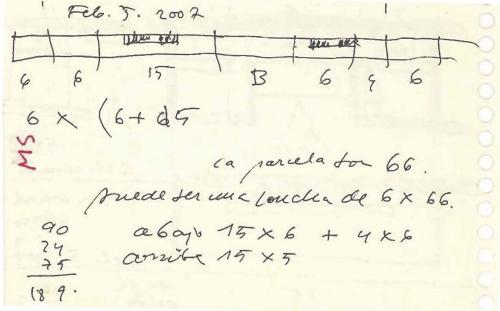 Feb. 5. 2007
6 6 15 B 6 4 6
6 x (6 +
MS
la parcela son 66.
puede ser una loncha de 6 x 66.
90 abajo 15 x 6 + 4 x 6
24 arriba 15 x 5
75
189.